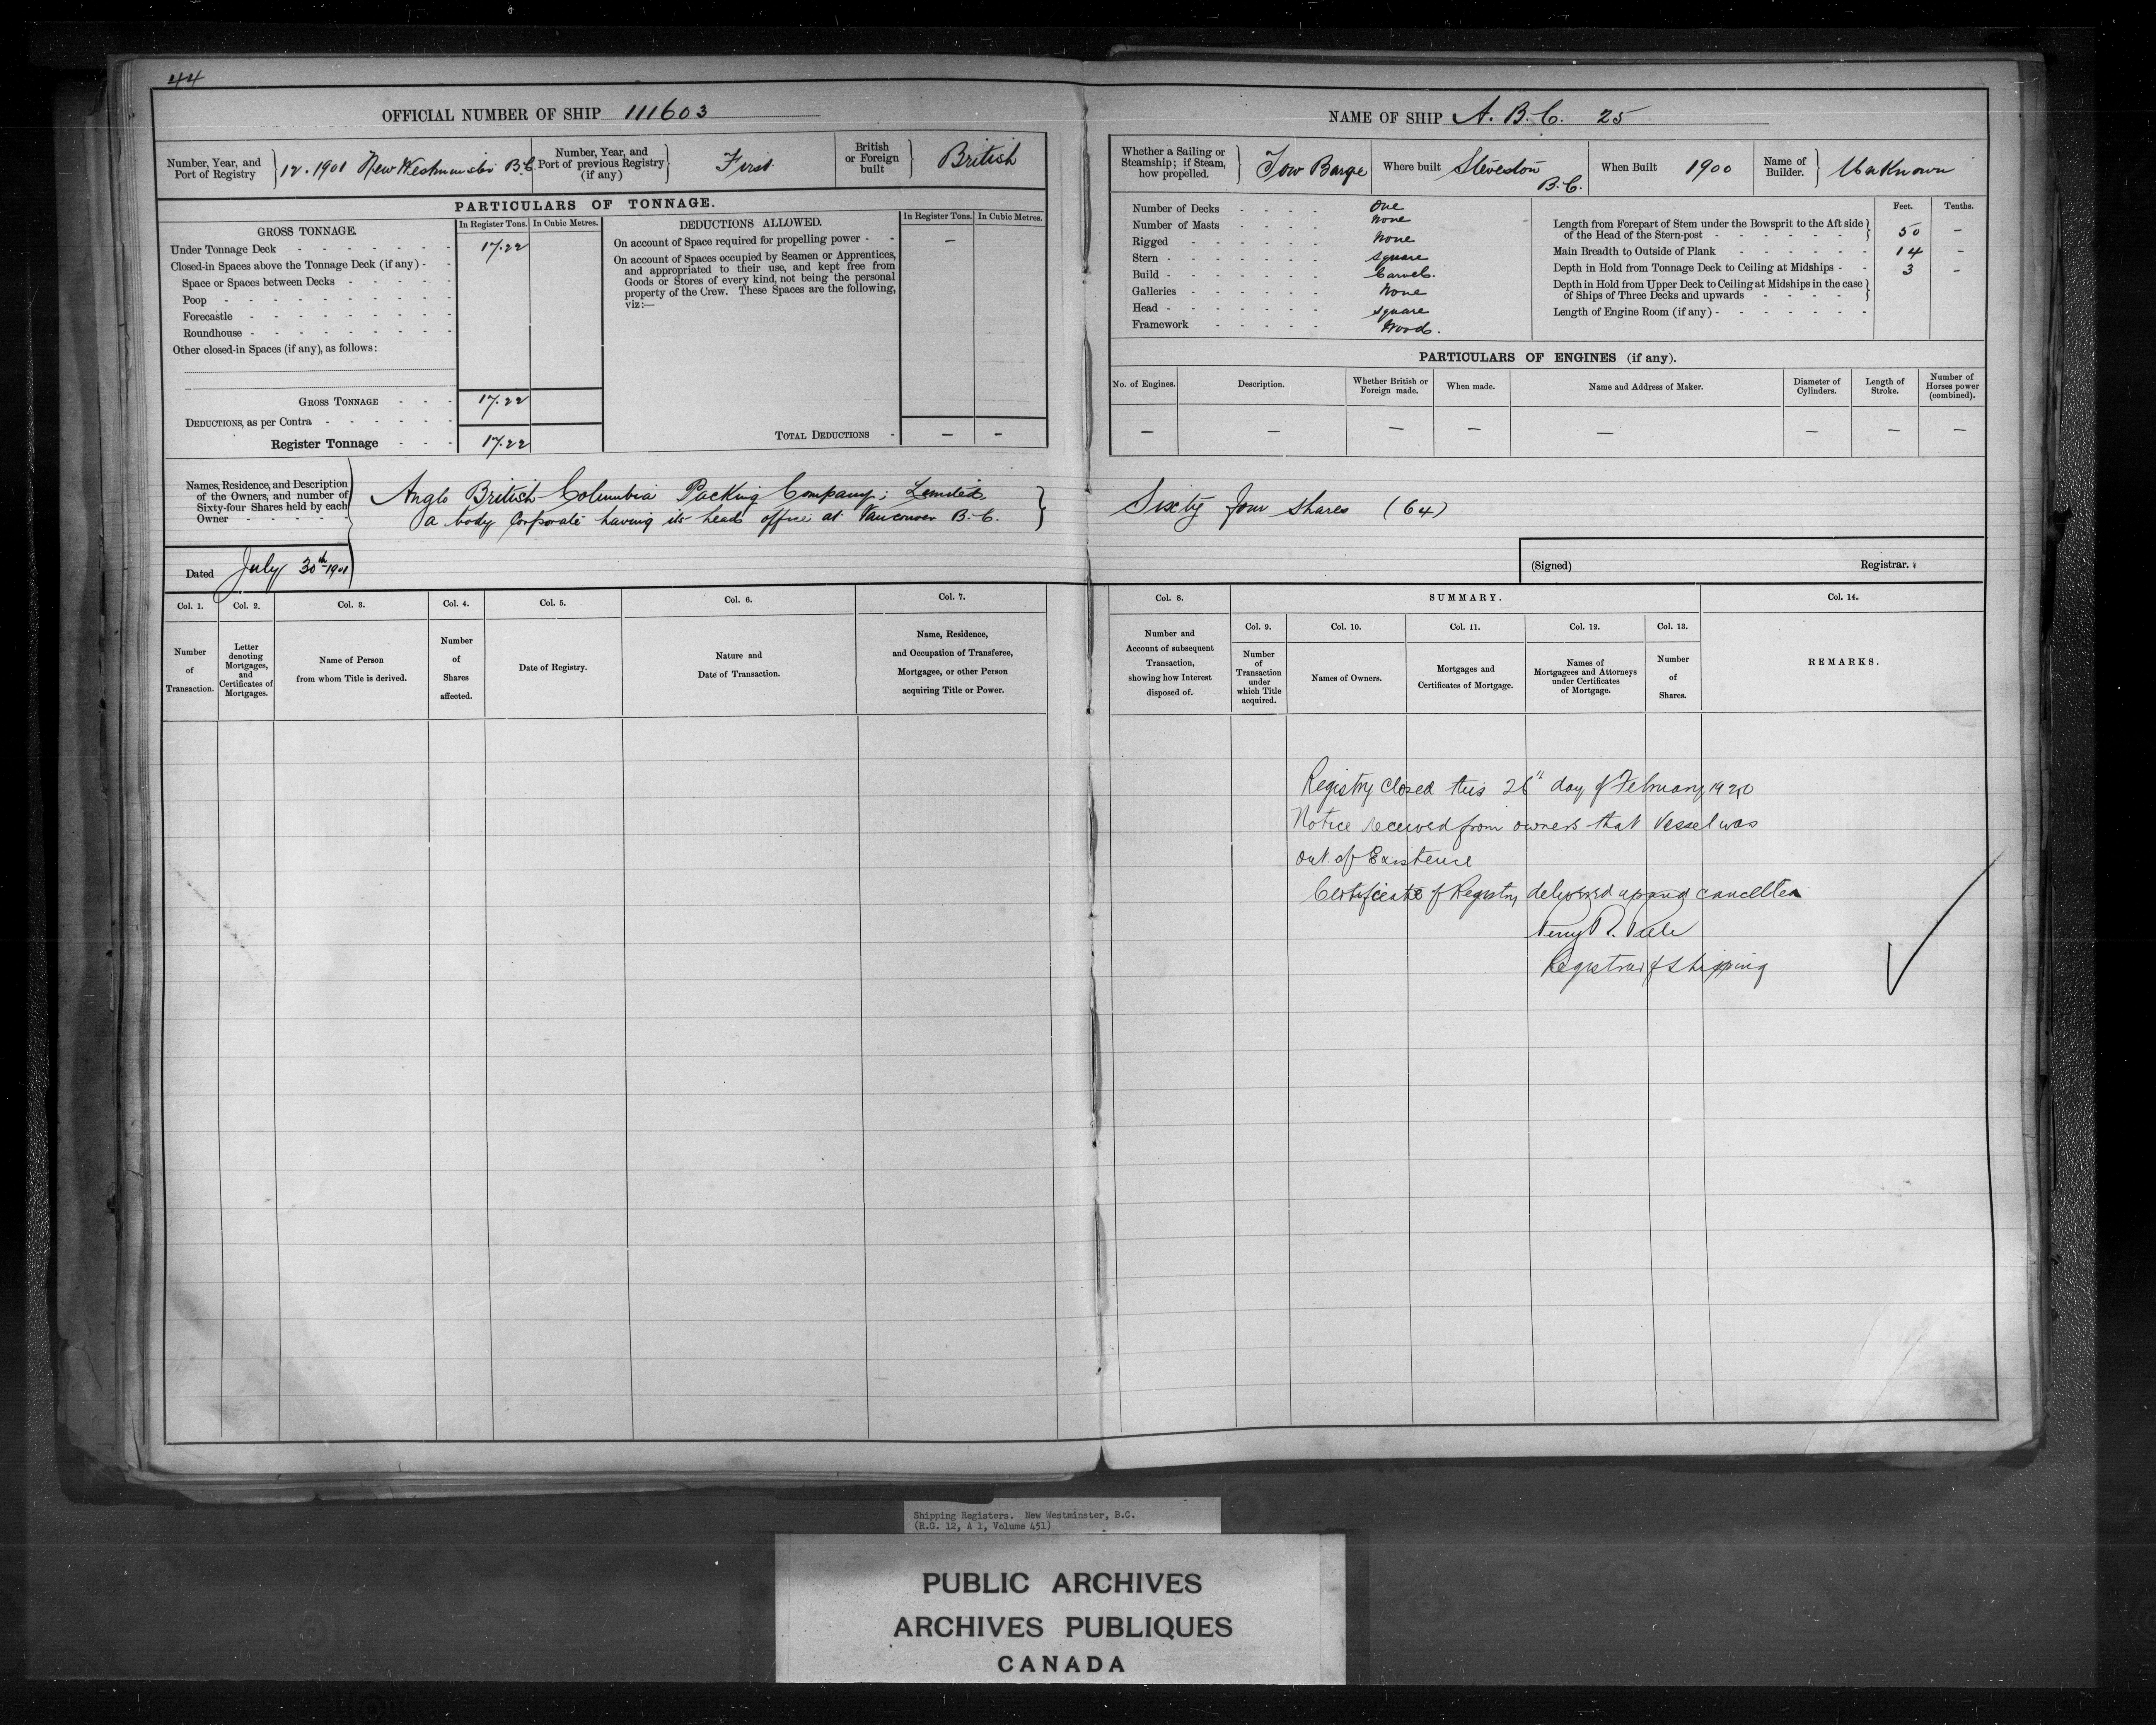 44
OFFICIAL NUMBER OF SHIP 111603
Number, Year, and Port of Registry } 12. 1901 New Westminster B.C.
Number, Year, and Port of previous Registry (if any) } First
British or Foreign built } British
PARTICULARS OF TONNAGE.
GROSS TONNAGE.
In Register Tons. In Cubic Metres.
Under Tonnage Deck - 17.22
Closed-in Spaces above the Tonnage Deck (if any) -
Space or Spaces between Decks -
Poop -
Forecastle -
Roundhouse -
Other closed-in Spaces (if any), as follows:
GROSS TONNAGE - 17.22
DEDUCTIONS, as per Contra -
Register Tonnage - 17.22
DEDUCTIONS ALLOWED.
In Register Tons. In Cubic Metres.
On account of Space required for propelling power - —
On account of Spaces occupied by Seamen or Apprentices,
and appropriated to their use, and kept free from
Goods or Stores of every kind, not being the personal
property of the Crew. These Spaces are the following,
viz:—
TOTAL DEDUCTIONS - — —
Names, Residence, and Description
of the Owners, and number of
Sixty-four Shares held by each
Owner -
Anglo British Columbia Packing Company; Limited
a body Corporate having its head office at Vancouver B.C.
Dated July 30th 1901
Col. 1. Number of Transaction.
Col. 2. Letter denoting Mortgages, and Certificates of Mortgages.
Col. 3. Name of Person from whom Title is derived.
Col. 4. Number of Shares affected.
Col. 5. Date of Registry.
Col. 6. Nature and Date of Transaction.
Col. 7. Name, Residence, and Occupation of Transferee, Mortgagee, or other Person acquiring Title or Power.
NAME OF SHIP A. B. C. 25
Whether a Sailing or Steamship; if Steam, how propelled. } Tow Barge
Where built Steveston B.C.
When Built 1900
Name of Builder. } Unknown
Number of Decks - One
Number of Masts - None
Rigged - None
Stern - Square
Build - Carvel.
Galleries - None
Head - Square
Framework - Wood.
Feet. Tenths.
Length from Forepart of Stem under the Bowsprit to the Aft side
of the Head of the Stern-post - 50 —
Main Breadth to Outside of Plank - 14 —
Depth in Hold from Tonnage Deck to Ceiling at Midships - 3 —
Depth in Hold from Upper Deck to Ceiling at Midships in the case
of Ships of Three Decks and upwards -
Length of Engine Room (if any) -
PARTICULARS OF ENGINES (if any).
No. of Engines. Description. Whether British or Foreign made. When made. Name and Address of Maker. Diameter of Cylinders. Length of Stroke. Number of Horses power (combined).
— — — — — — — —
Sixty four shares (64)
(Signed) Registrar.
Col. 8. Number and Account of subsequent Transaction, showing how Interest disposed of.
SUMMARY.
Col. 9. Number of Transaction under which Title acquired.
Col. 10. Names of Owners.
Col. 11. Mortgages and Certificates of Mortgage.
Col. 12. Names of Mortgagees and Attorneys under Certificates of Mortgage.
Col. 13. Number of Shares.
Col. 14. REMARKS.
Registry closed this 26th day of February 1920
Notice received from owners that vessel was
out of Existence
Certificate of Registry delivered up and cancelled
Registrar of Shipping
Shipping Registers. New Westminster, B.C.
(R.G. 12, A 1, Volume 451)
PUBLIC ARCHIVES
ARCHIVES PUBLIQUES
CANADA